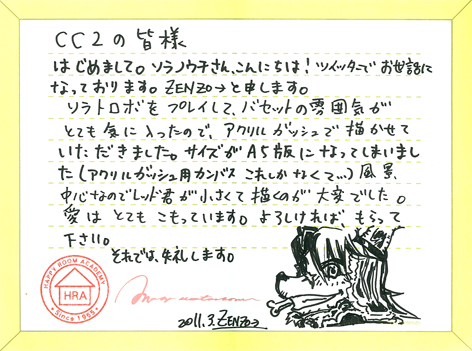 CC2の皆様
はじめまして。ソラノウチさん、こんにちは！ツイッターでお世話に
なっております。ZENZOっと申します。
ソラトロボをプレイして、バセットの雰囲気が
とても気に入ったので、アクリルガッシュで描かせて
いただきました。サイズがA5版になってしまいまし
た(アクリルガッシュ用カンバスこれしかなくて…)風景
中心なのでレッド君が小さくて描くのが大変でした。
愛はとてもこもっています。よろしければ、もらって
下さい。
それでは、失礼します。
HAPPY ROOM ACADEMY
HRA
Since 1965
2011.3.ZENZOっ